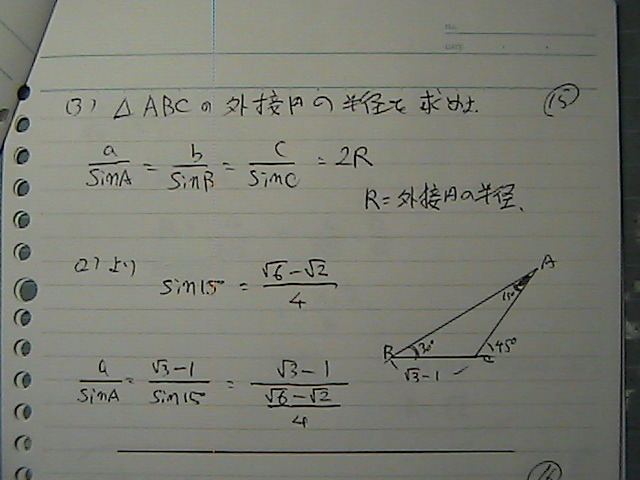 NO.
DATE
(3) △ABCの外接円の半径を求めよ. ⑮
a/sinA = b/sinB = c/sinC = 2R
R=外接円の半径、
(2)より
sin15° = (√6-√2)/4
A
15°
B 30° C 45°
√3-1
a/sinA = (√3-1)/sin15 = (√3-1)/((√6-√2)/4)
⑯